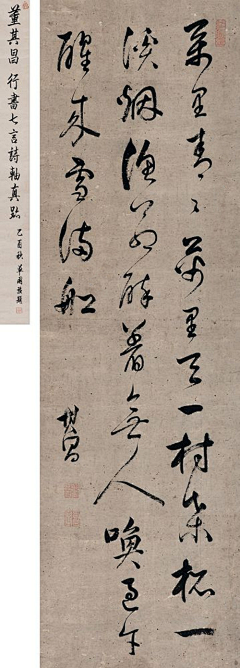 萬里清江萬里天一村桑柘一
溪烟漁翁醉著無人喚過午
醒來雪滿船
其昌
董其昌行書七言詩軸真跡
乙酉秋單國強題